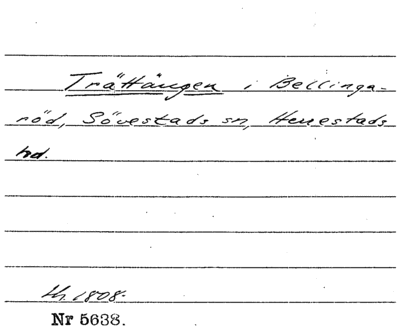 Trättängen i Bellinga-
röd, Sövestads sn, Herrestads
hd.
th. 1808.
Nr 5638.